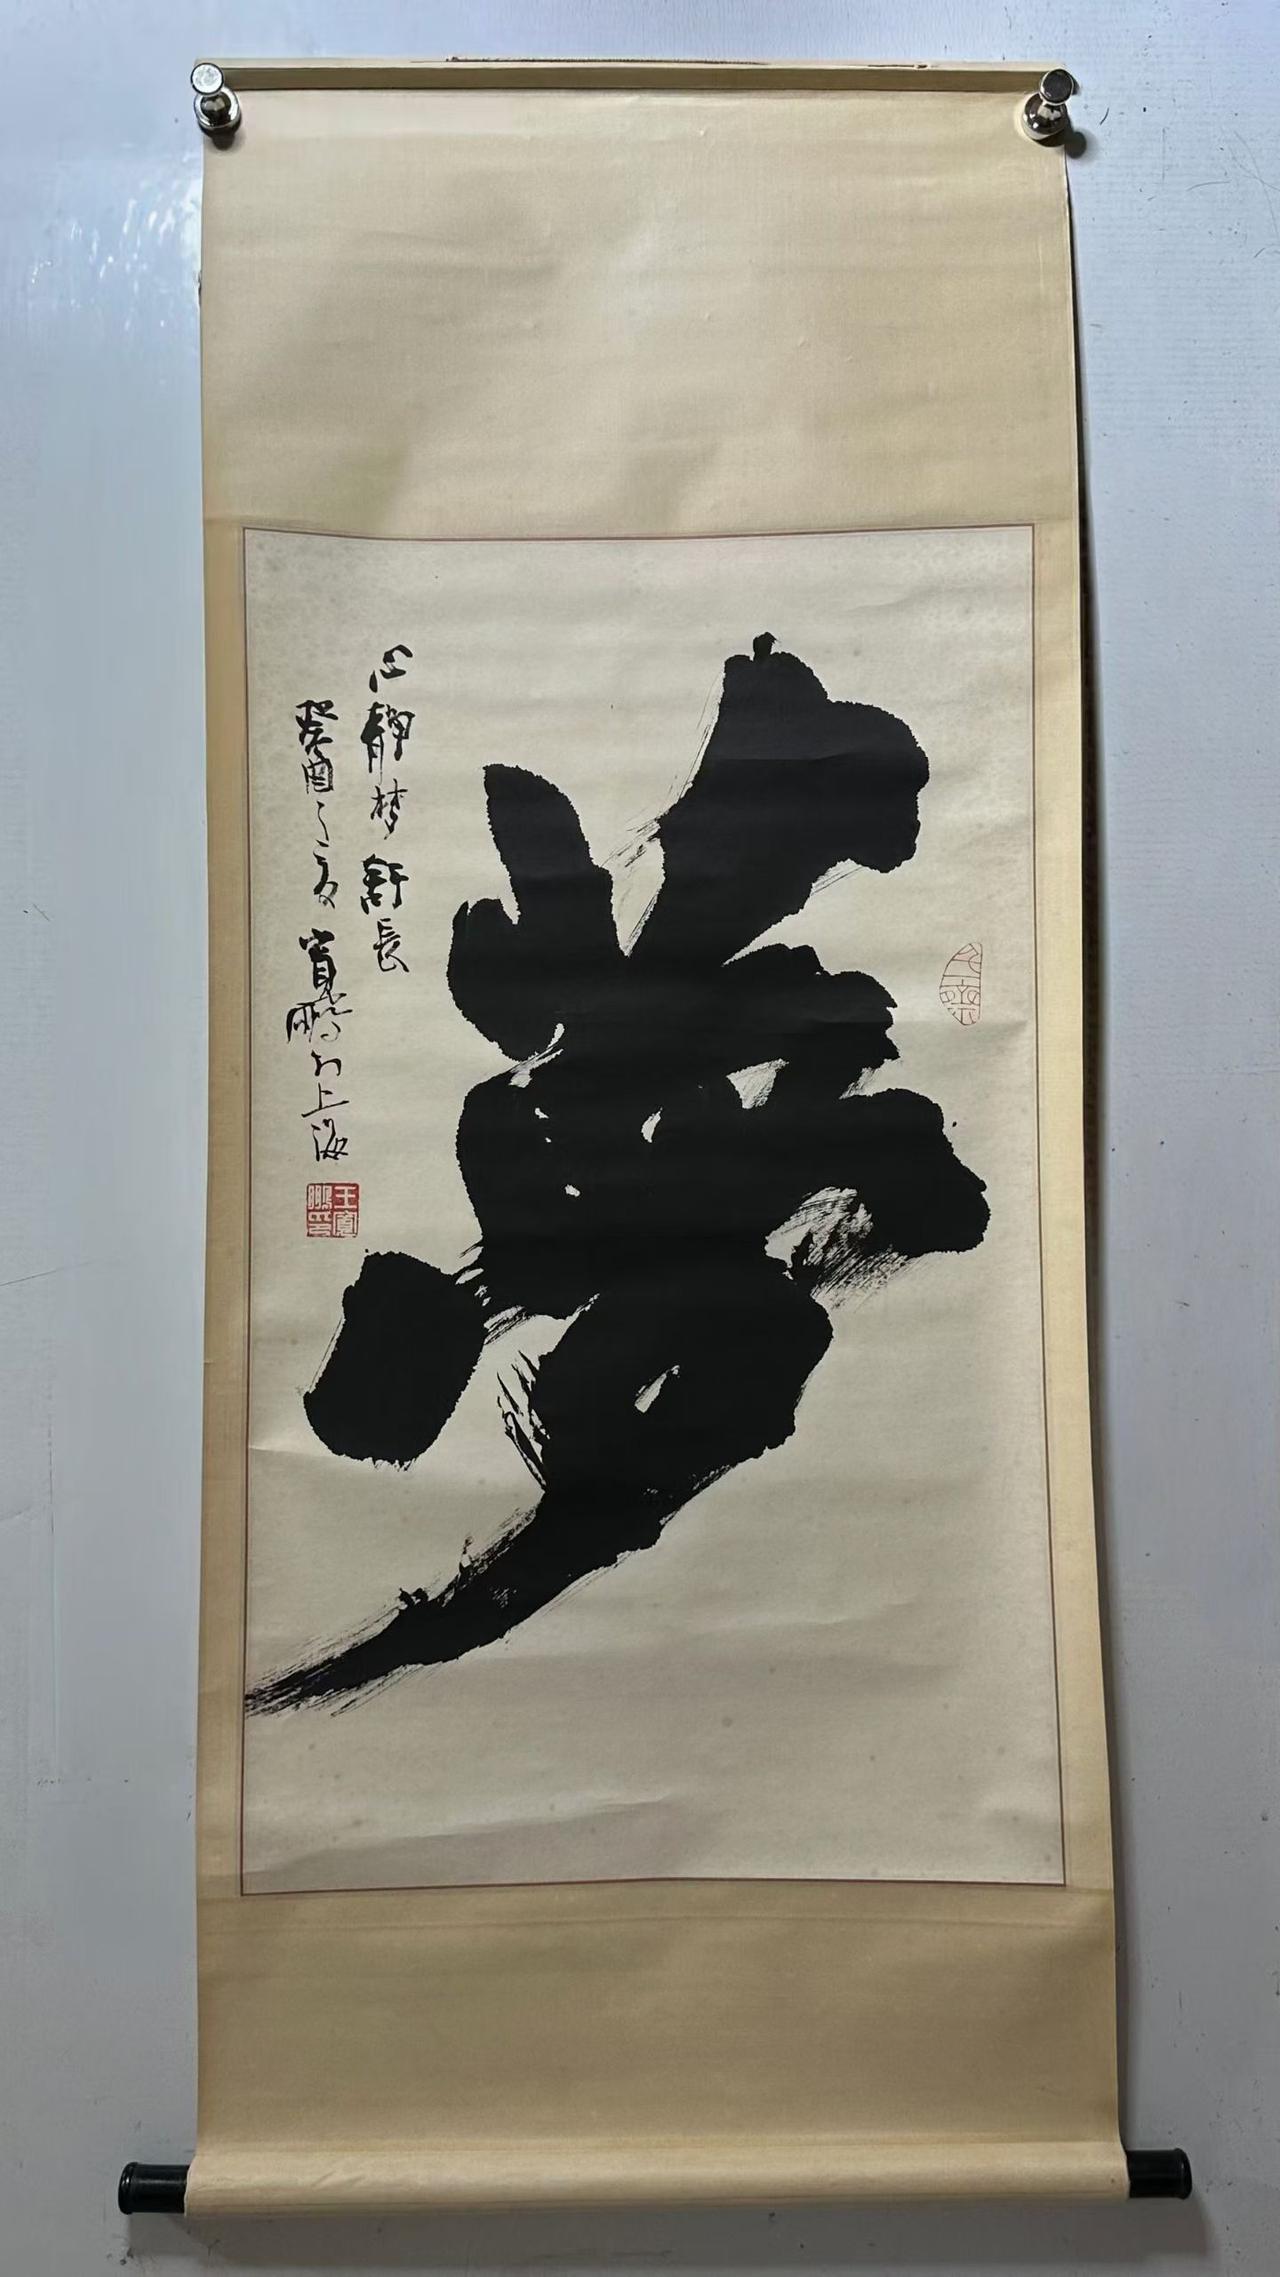 夢
心静梦舒長
癸酉之夏寶鵬於上海
王寶鵬印